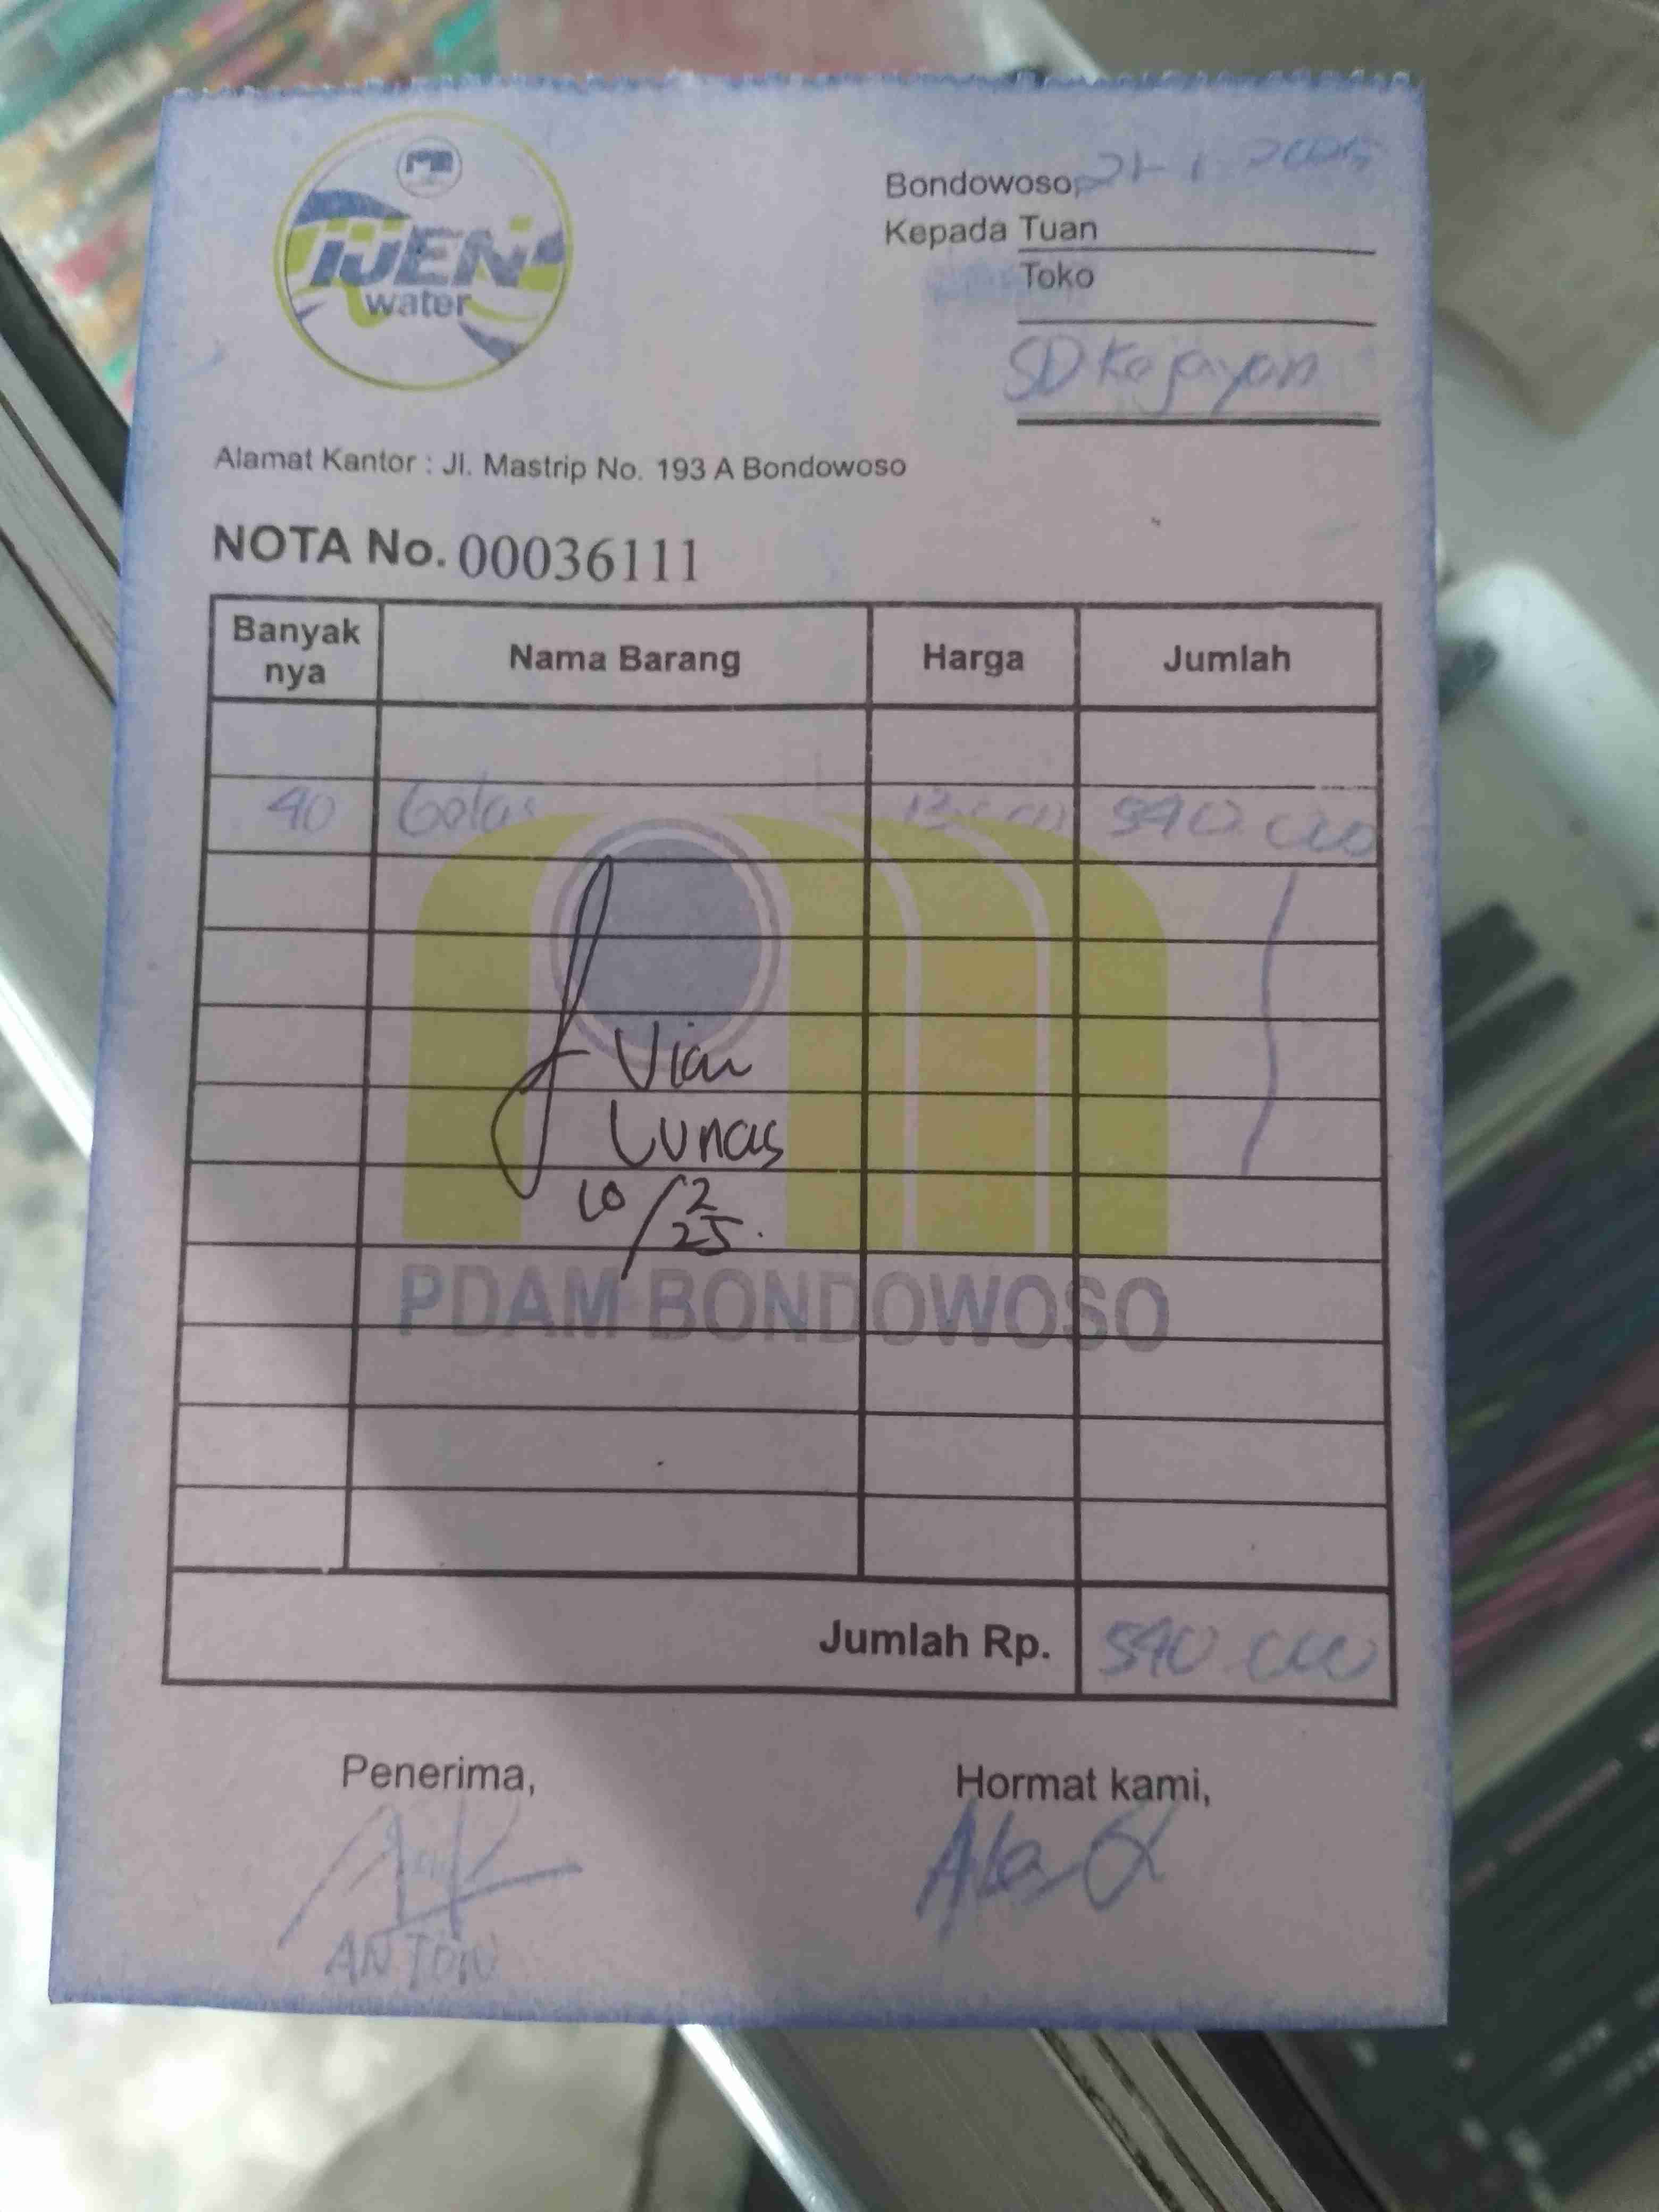 IJEN
water
Bondowoso, 21-1 2025
Kepada Tuan
Toko
SD Kejayan
Alamat Kantor : Jl. Mastrip No. 193 A Bondowoso
NOTA No. 00036111
Banyak nya Nama Barang Harga Jumlah
40 Gelas 540.000
Vian
Lunas
10/2
25.
PDAM BONDOWOSO
Jumlah Rp. 540.000
Penerima, Hormat kami,
ANTON